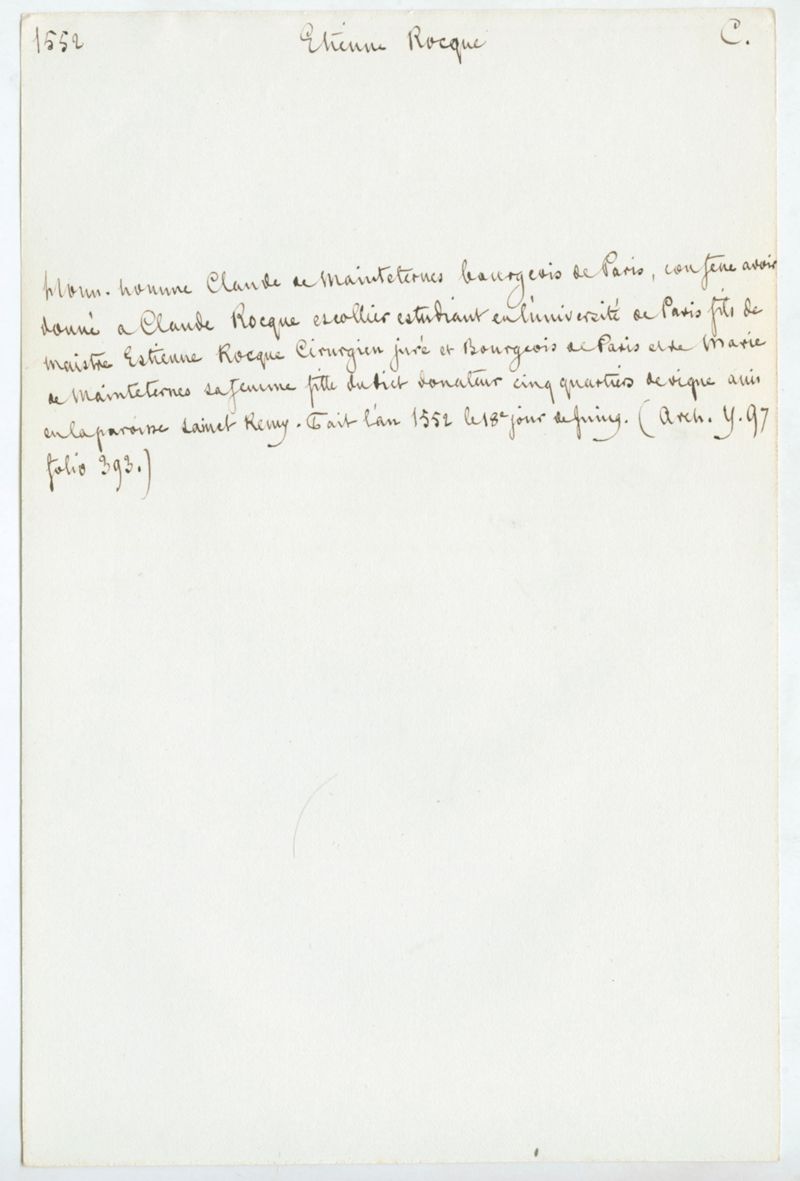 1552 Etienne Rocque C.
Honn. homme Claude de Mainteternes bourgeois de Paris, confene avoir
donné a Claude Rocque escollier estudiant en l'université de Paris fils de
Maistre Estienne Rocque Cirurgien juré et Bourgeois de Paris et de Marie
de Mainteternes sa femme fille dudict donateur cinq quartiers de vigne assis
en la paroisse sainct Remy. Fait l'an 1552 le 18e jour de Juing. (Arch. Y. 97
folio 393.)